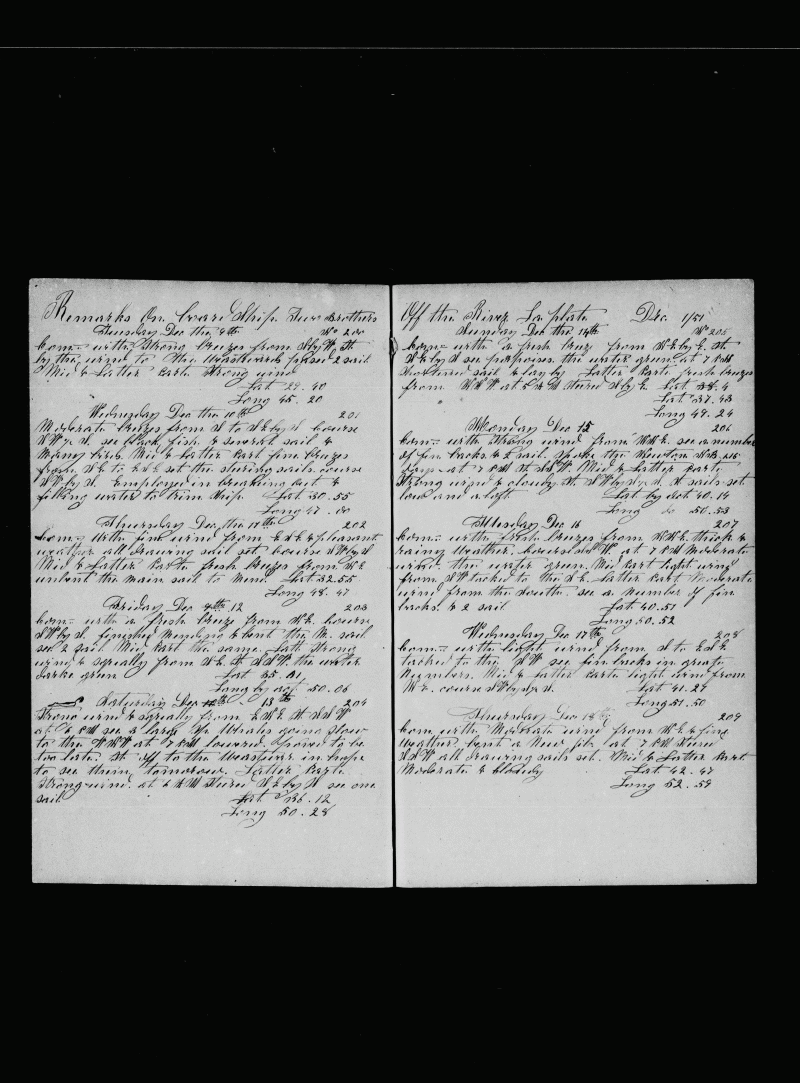 Remarks On board Ship Two Brothers
Tuesday Dec the 9th No 200
Com- with Strong breezes from SbyW St
by the wind to the Westward passed 2 sail
Mid & Latter Part Strong wind
Lat 29.40
Long 45.20
Wednesday Dec the 10th 201
Moderate breezes from to NEbyN course
SW see black fish & several sail &
Many birds Mid & Latter Part fine breezes
from NE to ENE set the studing sails course
SWbyS. Employed in breaking out &
filling water to trim Ship Lat 30.55
Long 47.00
Thursday Dec the 11th 202
Com- with fine wind from ENE & pleasant
weather all drawing sail set course SWbyS
Mid & Latter Part fresh breezes from NE
unbent the main sail to Mend Lat 32.55
Long 48.47
Friday Dec 12 203
Com- with a fresh breeze from NE course
SWbyS. finished Mending & bent the M. sail
see 2 sail Mid Part the same Latt Strong
wind & squally from NE St SSW the water
darke green Lat 35.21
Long by act 50.06
Saturday Dec 13th 204
Strong wind & squally from ENE St SSW
at 6 PM see a large Sp Whale going Slow
to the WSW at 7 PM lowered proved to be
too late. St off to the Westward in hope
to see them tomorrow. Latter Part
Strong wind at 6 AM Steered SEbyS see one
sail Lat 36.12
Long 50.28
Off the River La plate Dec 1/51
Sunday Dec the 14th No 205
Com- with a fresh breeze from NEbyE St
SEbyS see porpoises the water green at 7 PM
Shortened sail & lay by Latter Part fresh breeze
from NNW at 5 AM Steered SbyE Lat 38.4
Lat 37.43
Long 49.24
Monday Dec 15 206
Com- with Strong wind from NNE see a number
of fin backs & 2 sail Spoke the Newton NB 26
at 7 PM St SSW. Mid & Latter Part
Strong wind & cloudy St SWbyS sails set
low and aloft Lat by act 40.14
Long do 50.53
Tuesday Dec 16 207
Com- with fresh breezes from NNE thick &
rainy Weather. course SSW at 7 PM Moderate
wind the water green Mid Part light wind
from SW tacked to the SE Latter Part Moderate
wind from the South see a Number of fin
backs & 2 sail Lat 40.51
Long 50.52
Wednesday Dec 17th 208
Com- with light wind from S to ESE
tacked to the SW see fin backs in great
Numbers. Mid & Latter Part light wind from
NE course SWbyS Lat 41.27
Long 51.50
Thursday Dec 18th 209
Com with Moderate wind from NE & fine
Weather bent a New jib at 7 PM Steered
SSW all drawing sails set. Mid & Latter Part
Moderate & bloudy Lat 42.47
Long 52.59